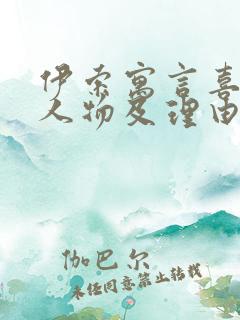 伊索寓言喜
人物及理由
伽巴尔
未经同意禁止转载